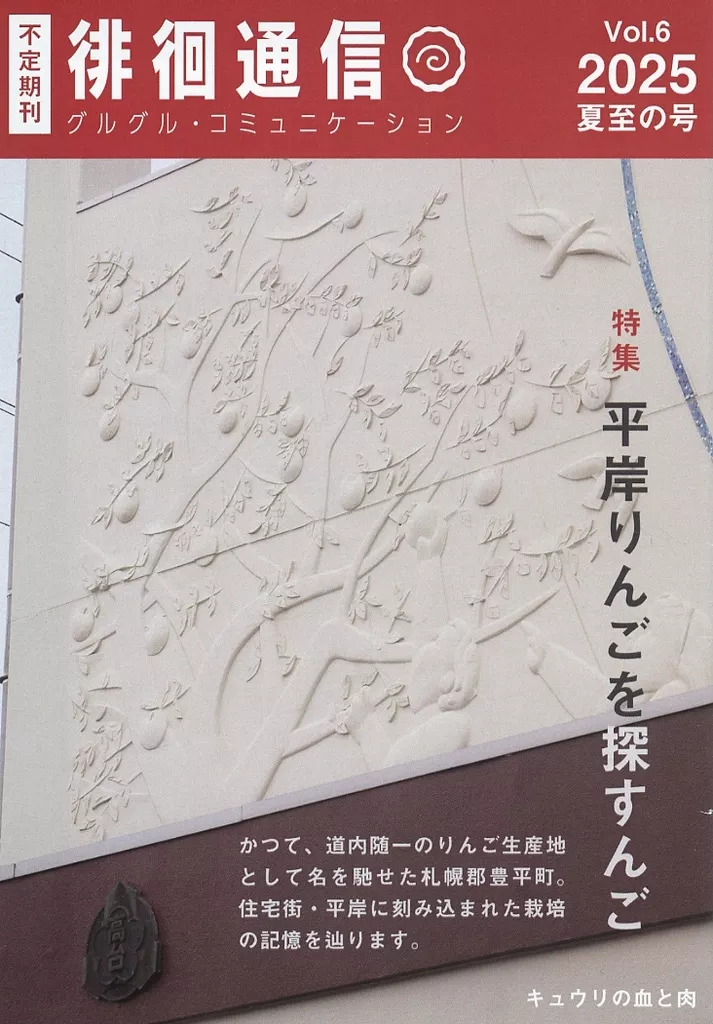 不定期刊
徘徊通信
グルグル・コミュニケーション
Vol.6
2025
夏至の号
特集
平岸りんごを探すんご
かつて、道内随一のりんご生産地
として名を馳せた札幌郡豊平町。
住宅街・平岸に刻み込まれた栽培
の記憶を辿ります。
高台
キュウリの血と肉